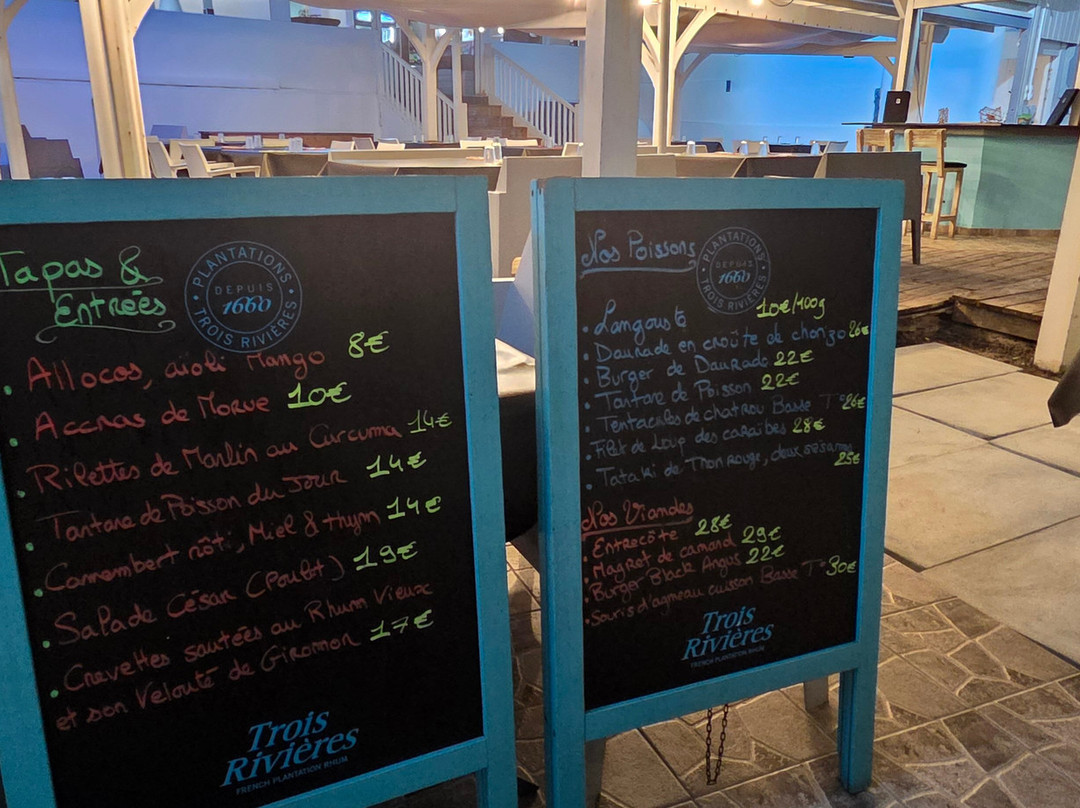 Tapas &
Entrées
PLANTATIONS
DEPUIS
1660
TROIS RIVIÈRES
Allocos, aïoli Mango 8€
Accras de Morue 10€
Rilettes de Marlin au Curcuma 14€
Tartare de Poisson du Jour 14€
Camembert rôti, Miel & thym 14€
Salade César (Poulet) 19€
Crevettes sautées au Rhum Vieux
et son Velouté de Giromon 17€
Trois
Rivières
FRENCH PLANTATION RHUM
Nos Poissons
PLANTATIONS
DEPUIS
1660
TROIS RIVIÈRES
Langouste 10€/100g
Daurade en croûte de chorizo 26€
Burger de Daurade 22€
Tartare de Poisson 22€
Tentacules de chatrou Basse T° 26€
Filet de Loup des caraïbes 28€
Tataki de Thon rouge, deux sésames 25€
Nos Viandes
Entrecôte 28€
Magret de canard 29€
Burger Black Angus 22€
Souris d'agneau cuisson Basse T° 30€
Trois
Rivières
FRENCH PLANTATION RHUM